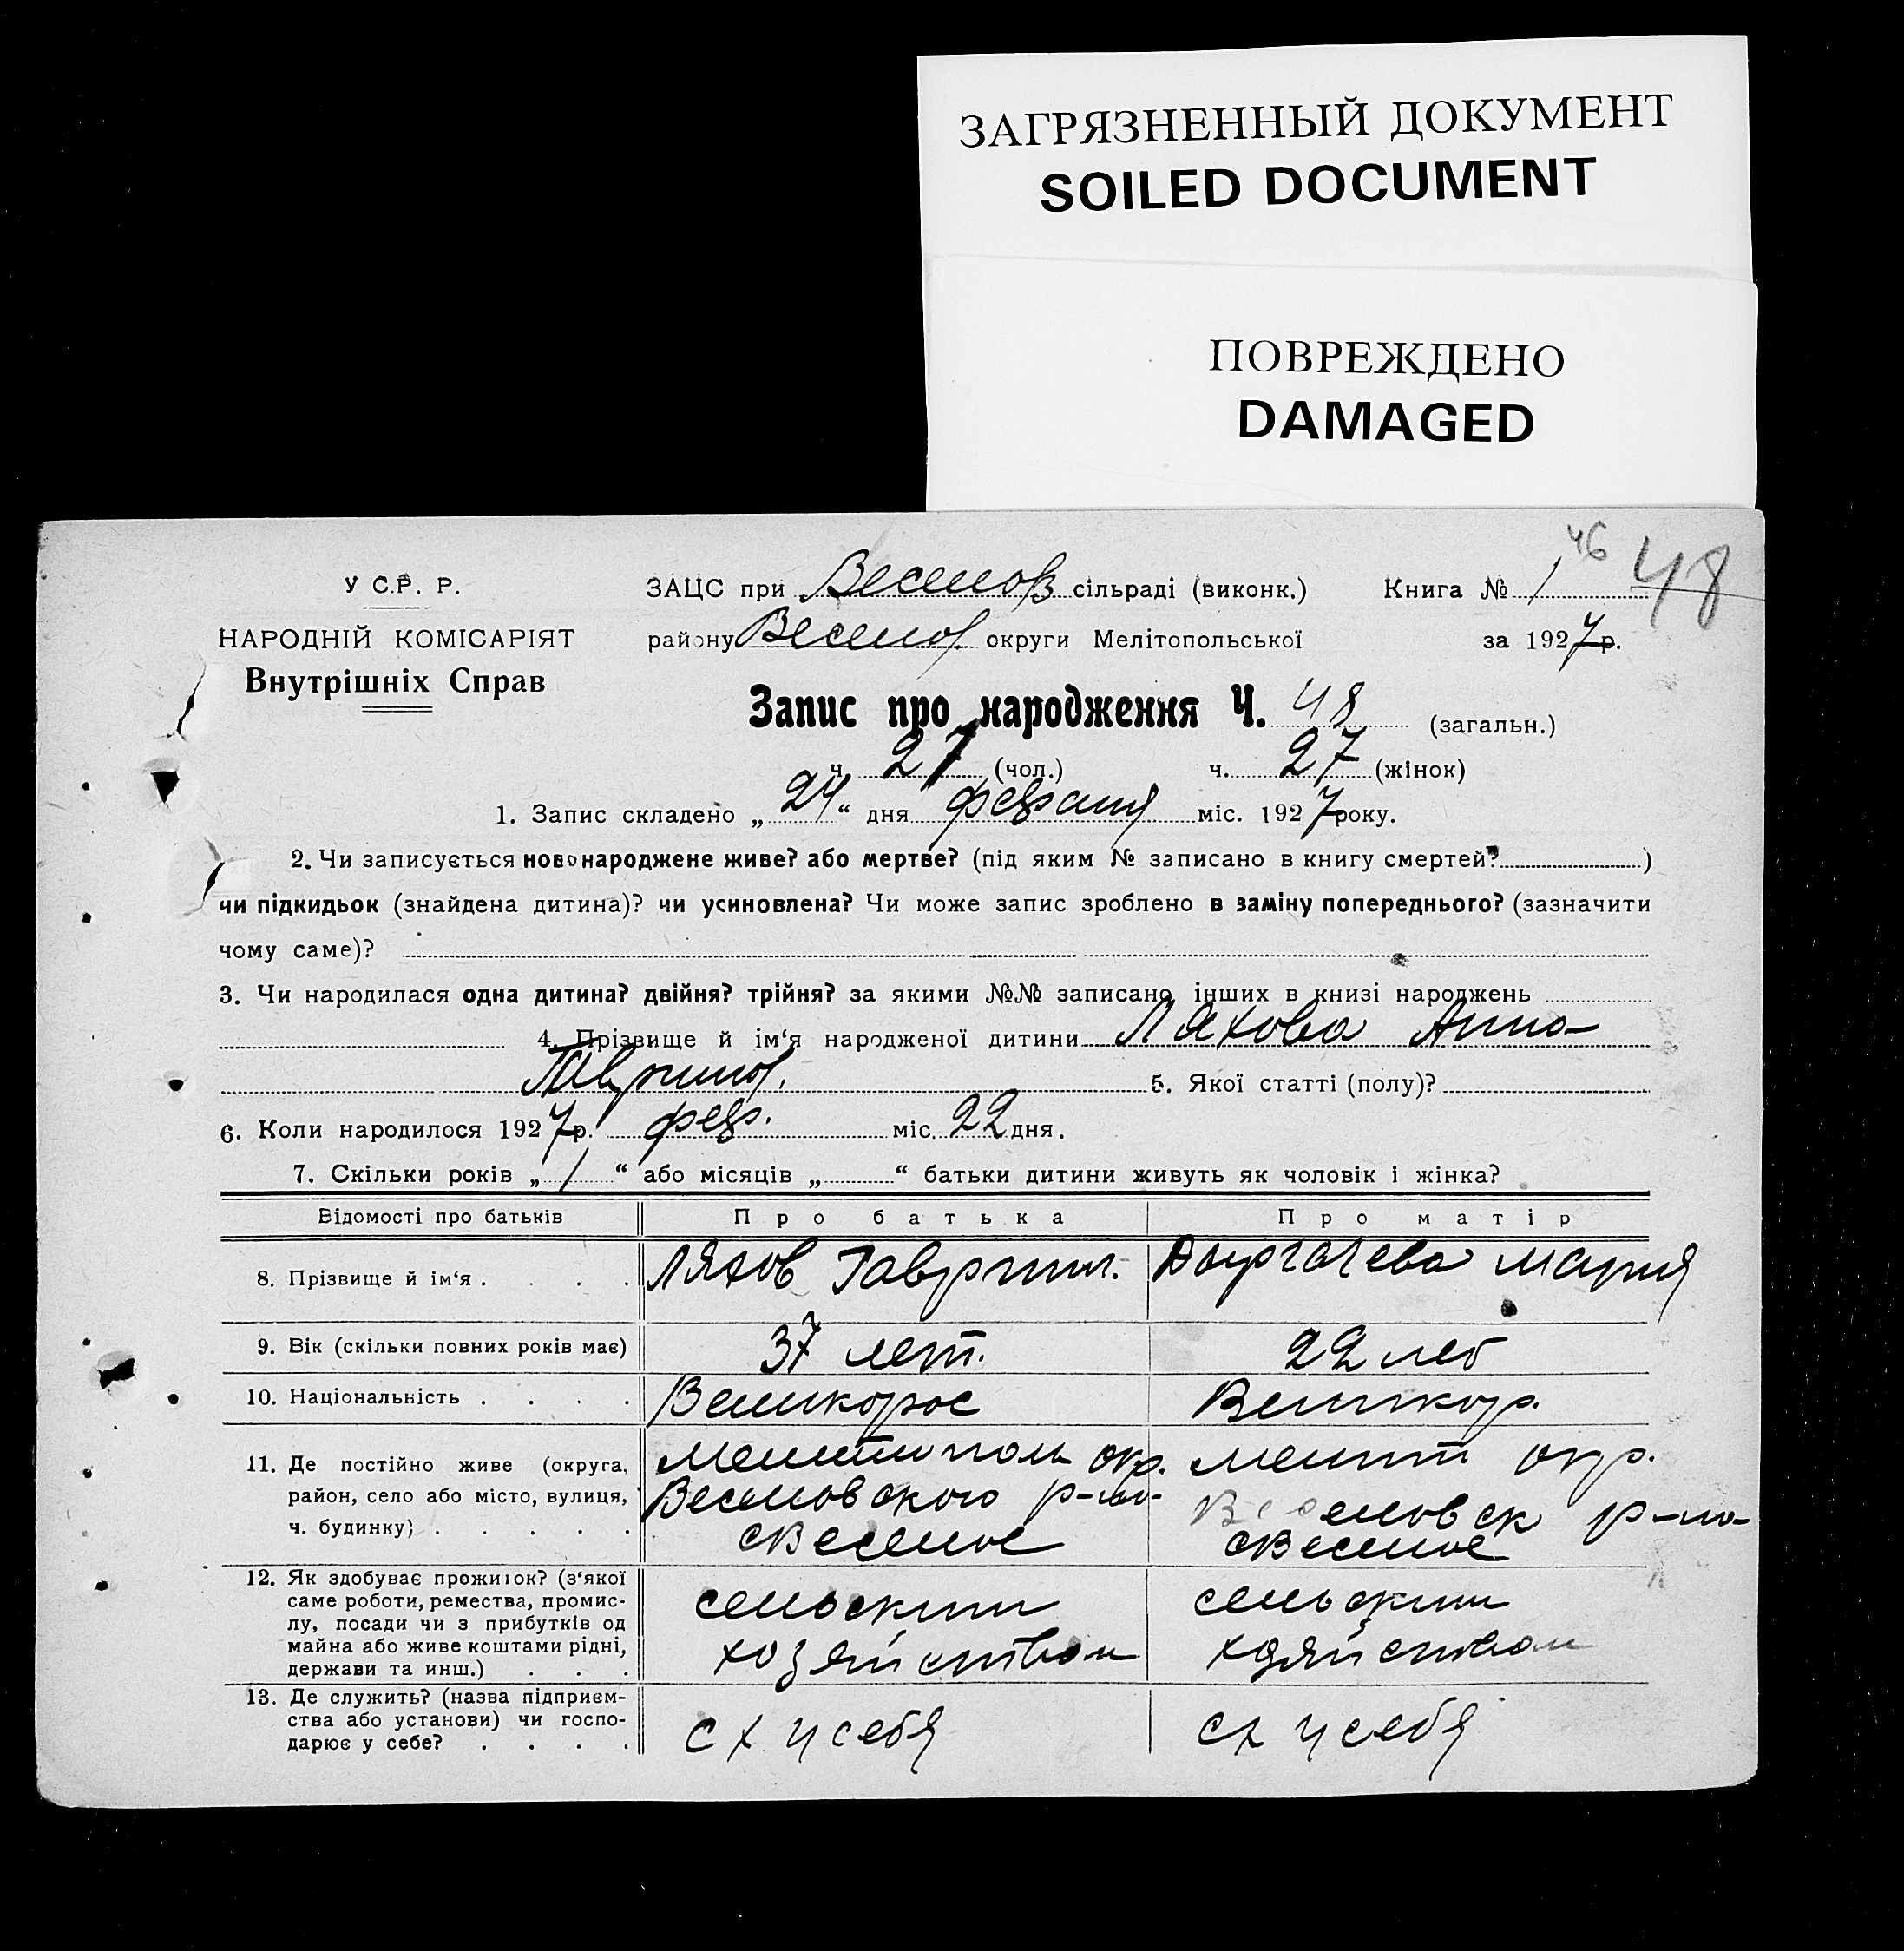 ЗАГРЯЗНЕННЫЙ ДОКУМЕНТ
SOILED DOCUMENT
ПОВРЕЖДЕНО
DAMAGED
46 48
У С.Р. Р. ЗАЦС при Веселов сільраді (виконк.) Книга № 1
НАРОДНІЙ КОМІСАРІЯТ району Веселов. округи Мелітопольської за 1927 р.
Внутрішніх Справ
Запис про народження Ч. 48 (загальн.)
ч. 27 (чол.) ч. 27 (жінок)
1. Запис складено „24“ дня февраля міс. 1927 року.
2. Чи записується новонароджене живе? або мертве? (під яким № записано в книгу смертей? )
чи підкидьок (знайдена дитина)? чи усиновлена? Чи може запис зроблено в заміну попереднього? (зазначити
чому саме)?
3. Чи народилася одна дитина? двійня? трійня? за якими №№ записано інших в книзі народжень
4. Прізвище й ім‘я народженої дитини Ляхова Анна
Гаврилов. 5. Якої статті (полу)?
6. Коли народилося 1927 р. фев. міс. 22 дня.
7. Скільки років „1“ або місяців „ “ батьки дитини живуть як чоловік і жінка?
Відомості про батьків Про батька Про матір
8. Прізвище й ім‘я . . . . Ляхов Гавриил. Мария
9. Вік (скільки повних років має) 37 лет. 22 лет
10. Національність . . . . Великорос Великор.
11. Де постійно живе (округа, Мелитополь окр. Мелит окр.
район, село або місто, вулиця, Веселовского р-на Веселовск р-на
ч. будинку) . . . . . с Веселое с Веселое
12. Як здобуває прожиток? (з‘якої
саме роботи, ремества, промис- сельским сельским
лу, посади чи з прибутків од
майна або живе коштами рідні, хозяйством хозяйством
держави та инш.) . . .
13. Де служить? (назва підприєм-
ства або установи) чи госпо- с х у себя с х у себя
дарює у себе? . . . .